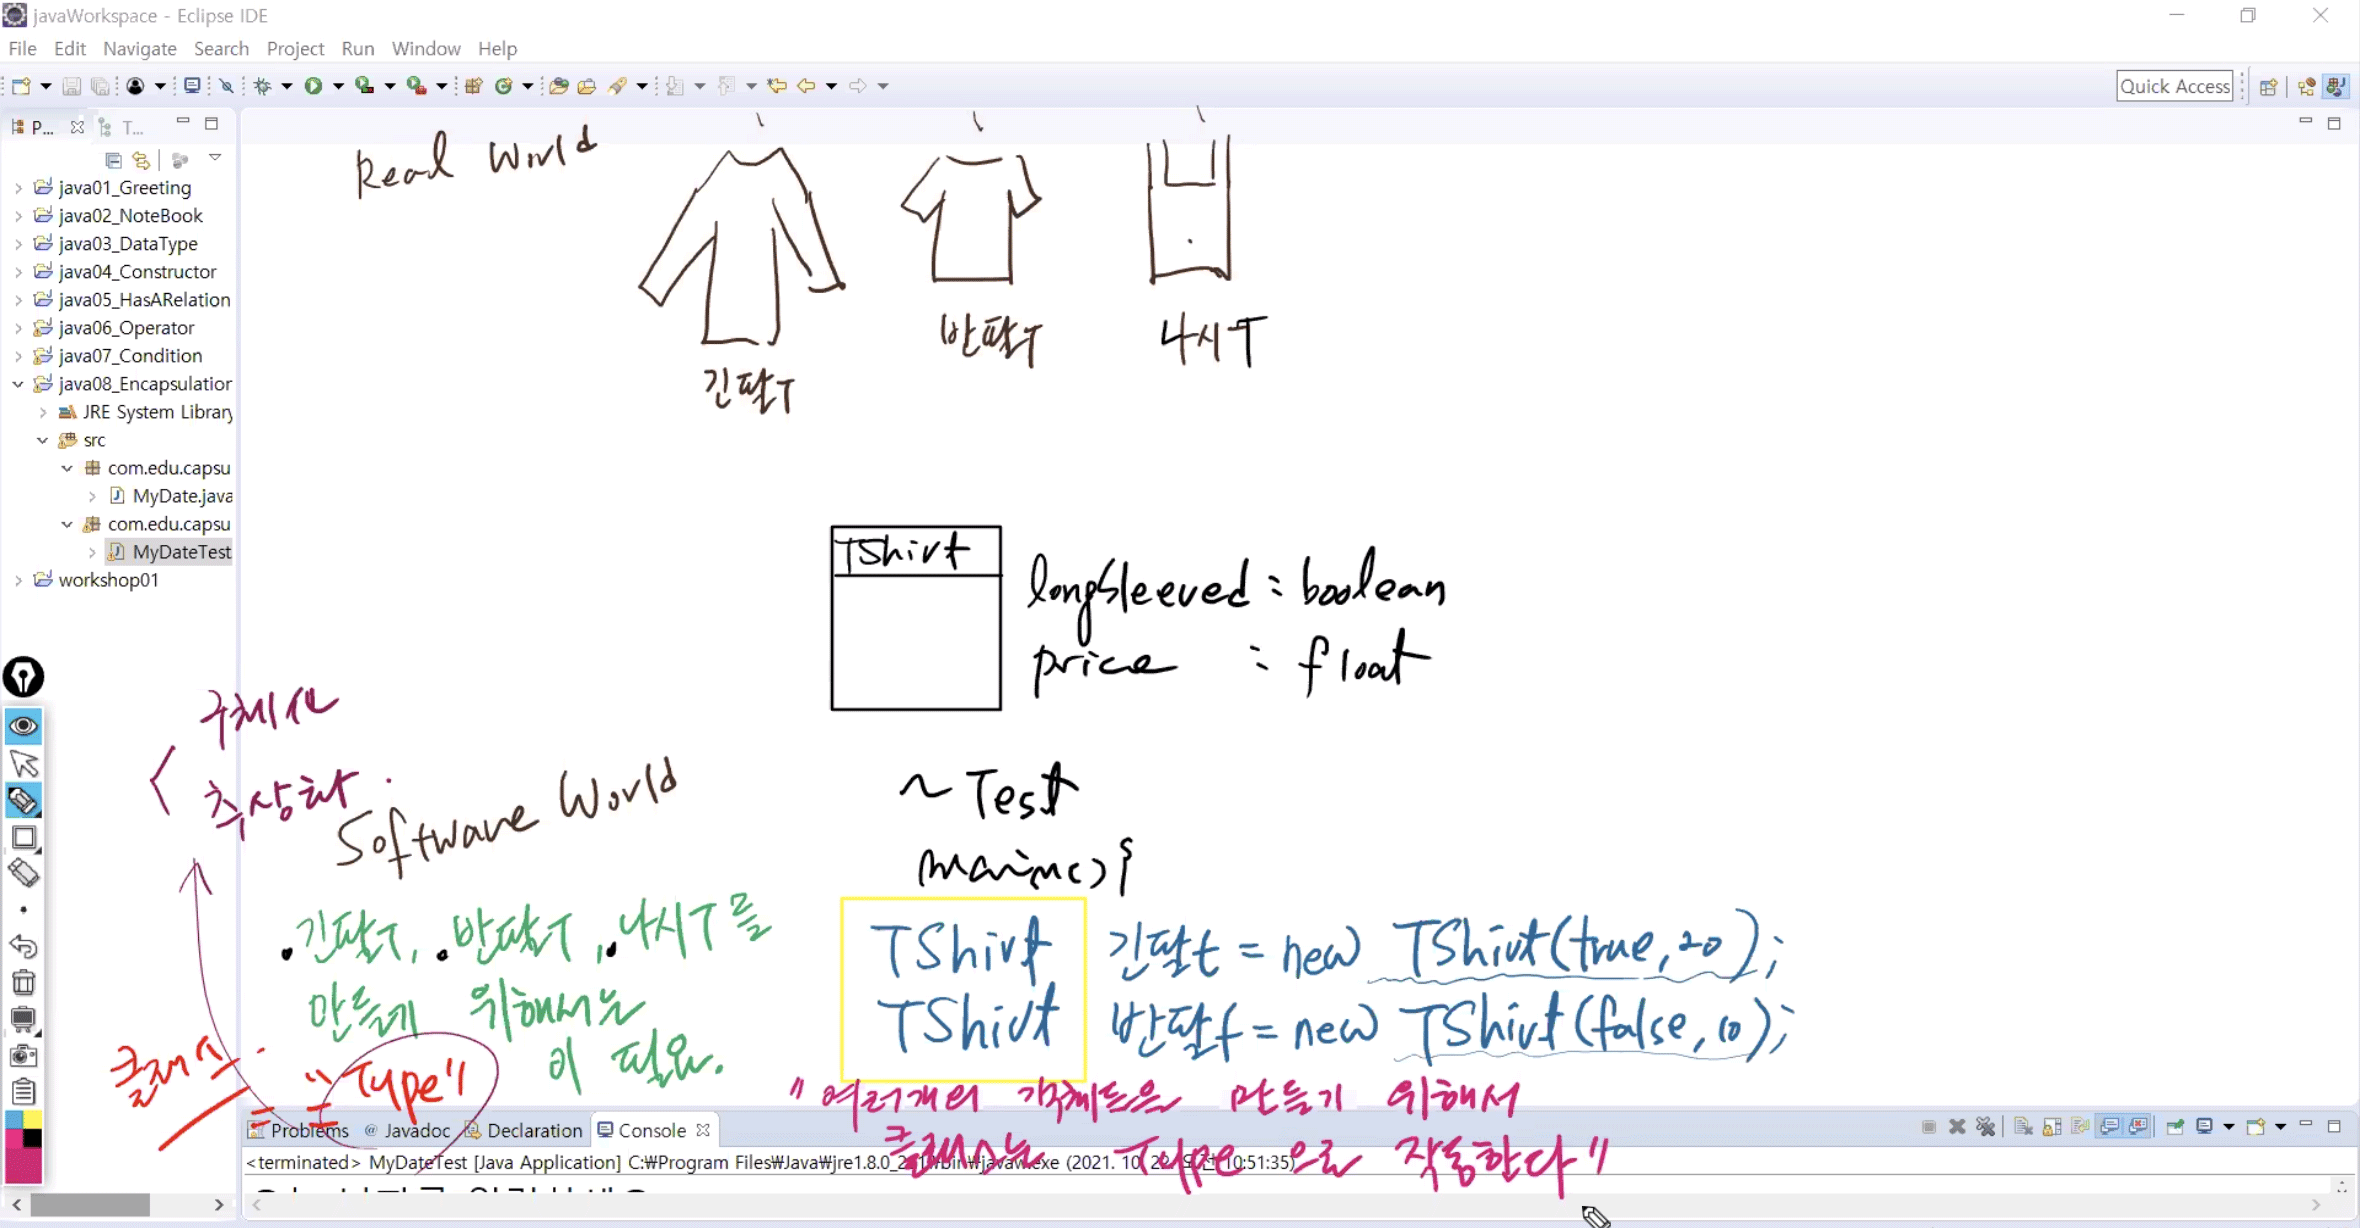 javaWorkspace - Eclipse IDE
File Edit Navigate Search Project Run Window Help
Quick Access
P... T...
java01_Greeting
java02_NoteBook
java03_DataType
java04_Constructor
java05_HasARelation
java06_Operator
java07_Condition
java08_Encapsulation
JRE System Library
src
com.edu.capsu
MyDate.java
com.edu.capsu
MyDateTest
workshop01
Real World
긴팔T
반팔T
나시T
TShirt
longSleeved : boolean
price : float
구체화
추상화.
Software World
~ Test
main() {
TShirt 긴팔t = new TShirt(true, 20);
TShirt 반팔t = new TShirt(false, 10);
긴팔T, 반팔T, 나시T를
만들기 위해서는
"Type" 이 필요.
클래스
"여러개의 객체들을 만들기 위해서
클래스는 Type 으로 작동한다"
Problems @ Javadoc Declaration Console
<terminated> MyDateTest [Java Application] C:₩Program Files₩Java₩jre1.8.0_ ₩bin₩javaw.exe (2021. 10. 22. 오전 10:51:35)